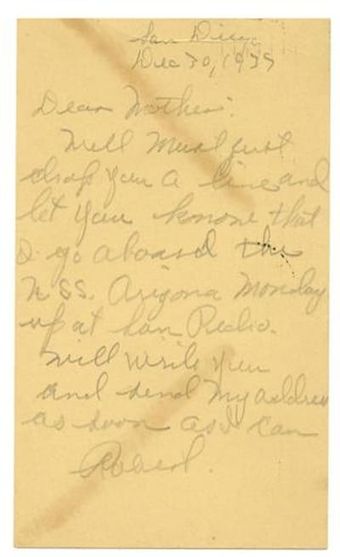 San Diego
Dec 30, 1939
Dear Mother:
Well Must just
drop you a line and
let you know that
I go aboard the
U.S.S. Arizona Monday
up at San Pedro.
Will write you
and send my address
as soon as I can
Robert.